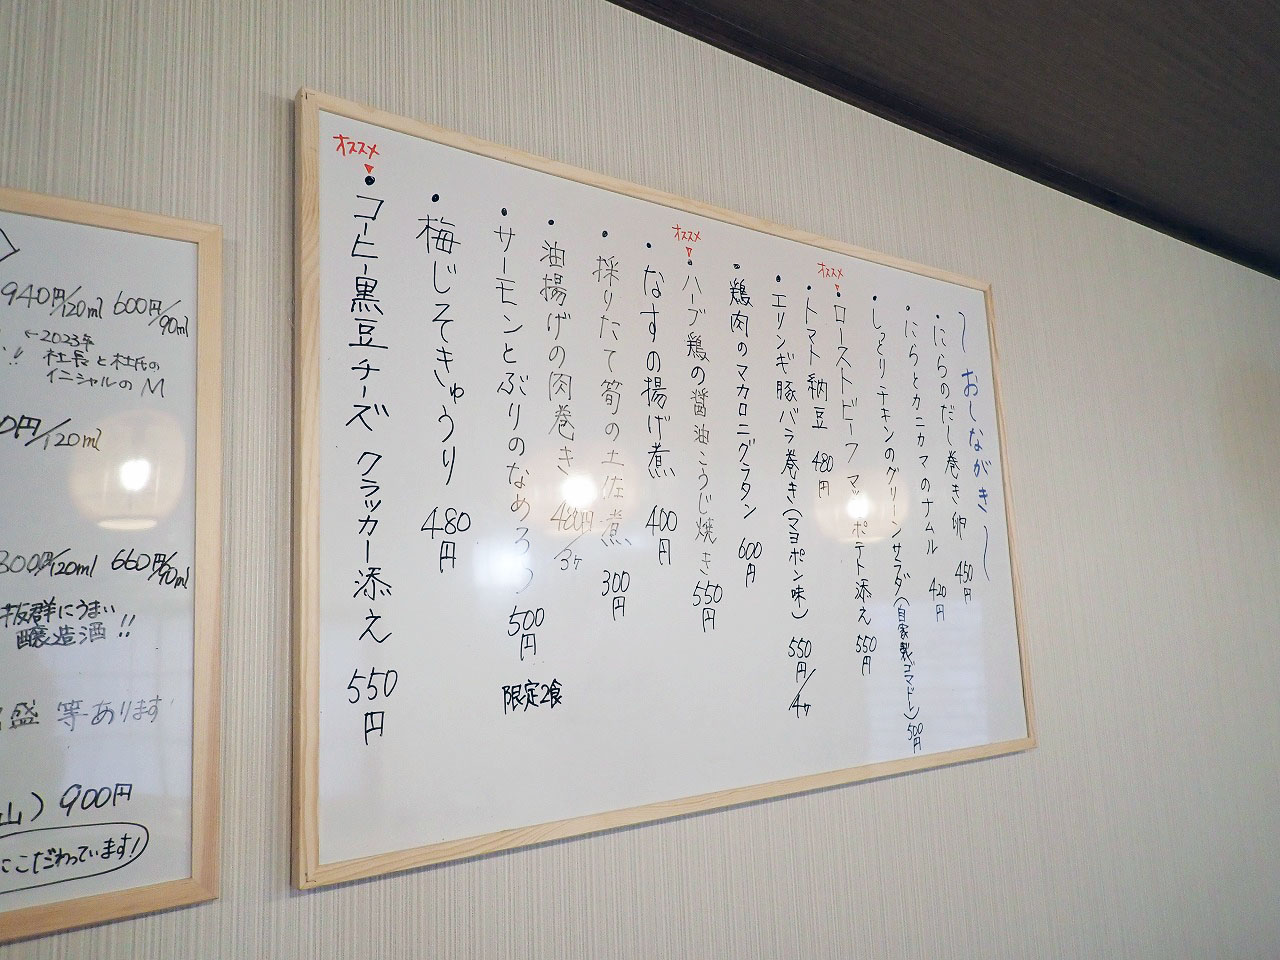 ～おしながき～
・にらのだし巻き卵 450円
・にらとカニカマのナムル 420円
・しっとりチキンのグリーンサラダ(自家製ゴマドレ) 500円
オススメ
・ローストビーフ マッシュポテト添え 550円
・トマト納豆 480円
・エリンギ豚バラ巻き(マヨポン味) 550円/4ヶ
・鶏肉のマカロニグラタン 600円
オススメ
・ハーブ鶏の醤油こうじ焼き 550円
・なすの揚げ煮 400円
・採りたて筍の土佐煮 300円
・油揚げの肉巻き 480円/3ヶ
・サーモンとぶりのなめろう 500円
限定2食
・梅じそきゅうり 480円
オススメ
・コーヒー黒豆チーズ クラッカー添え 550円
940円/120ml 600円/90ml
←2023年
!! 社長と杜氏の
イニシャルのM
0円/120ml
300円/120ml 660円/90ml
抜群にうまい
醸造酒!!
盛 等あります
山) 900円
にこだわっています!